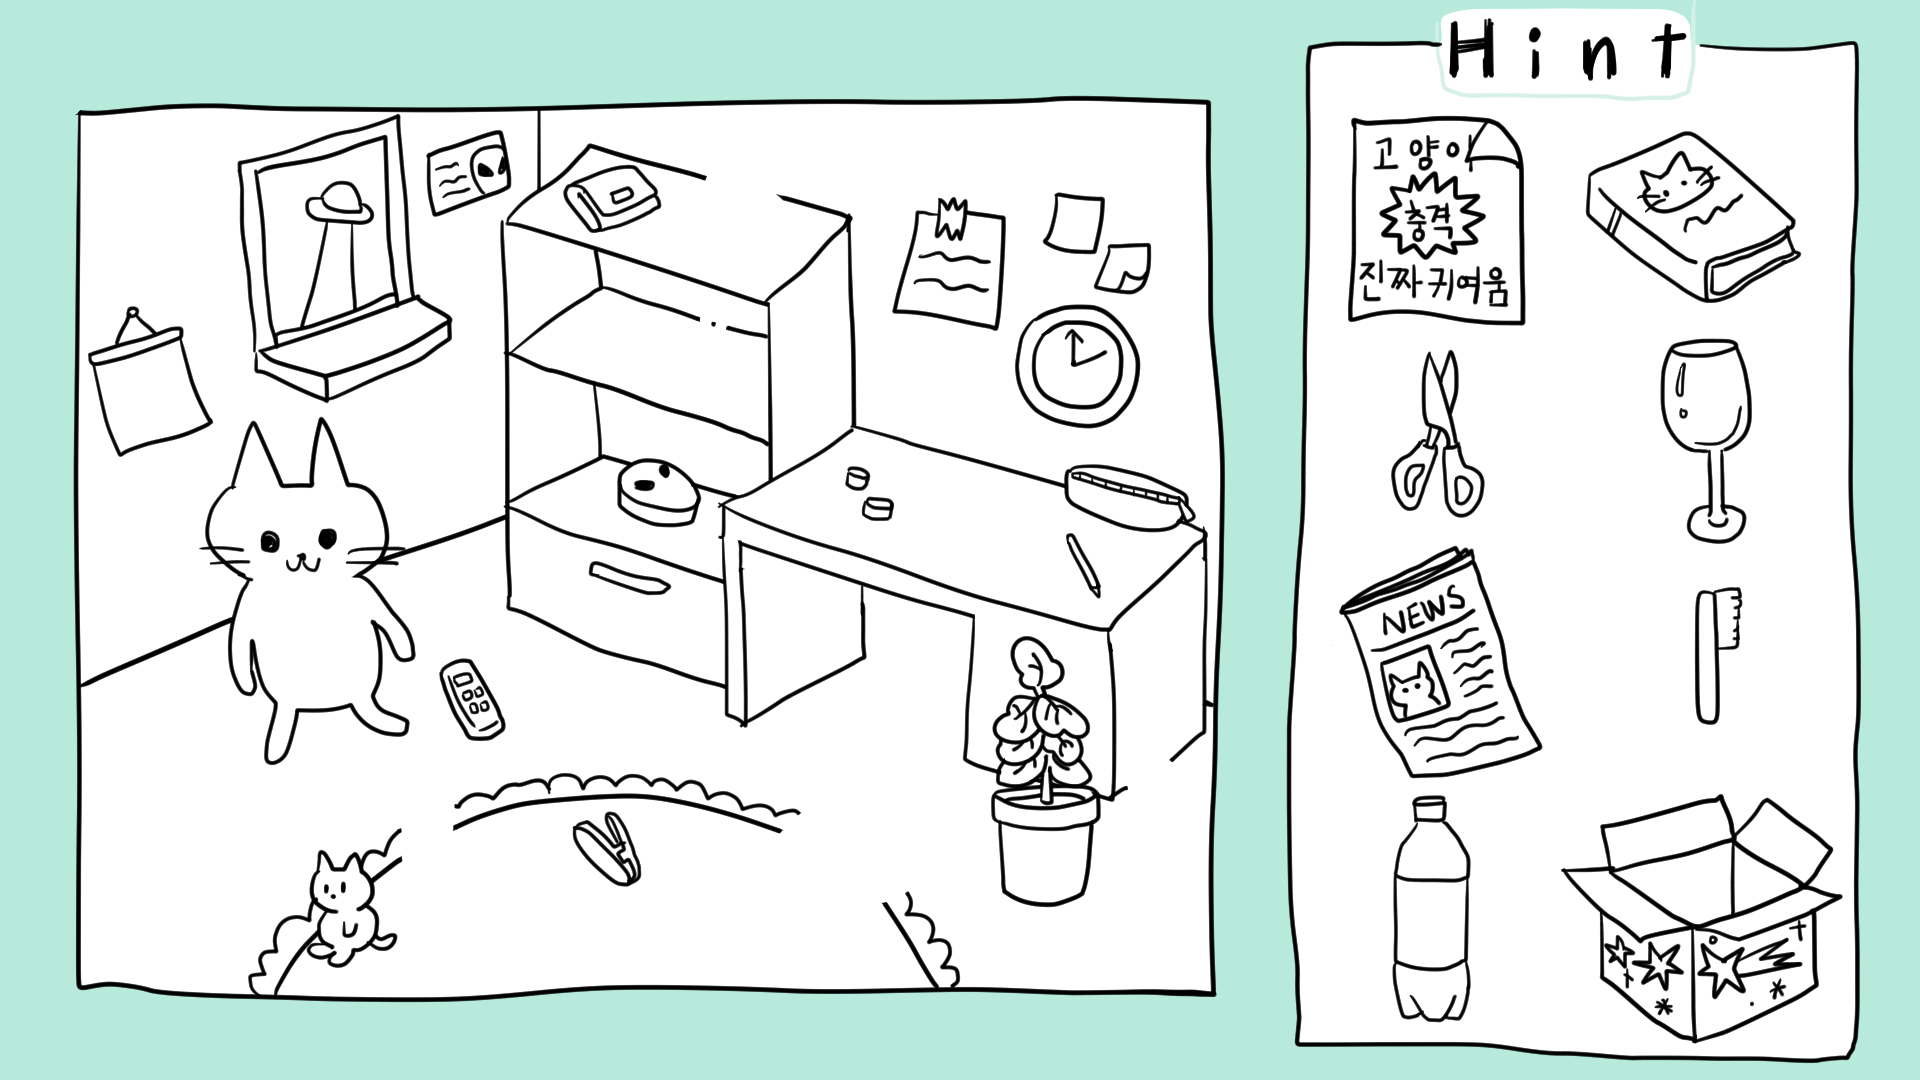 Hint
고양이
충격
진짜 귀여움
NEWS